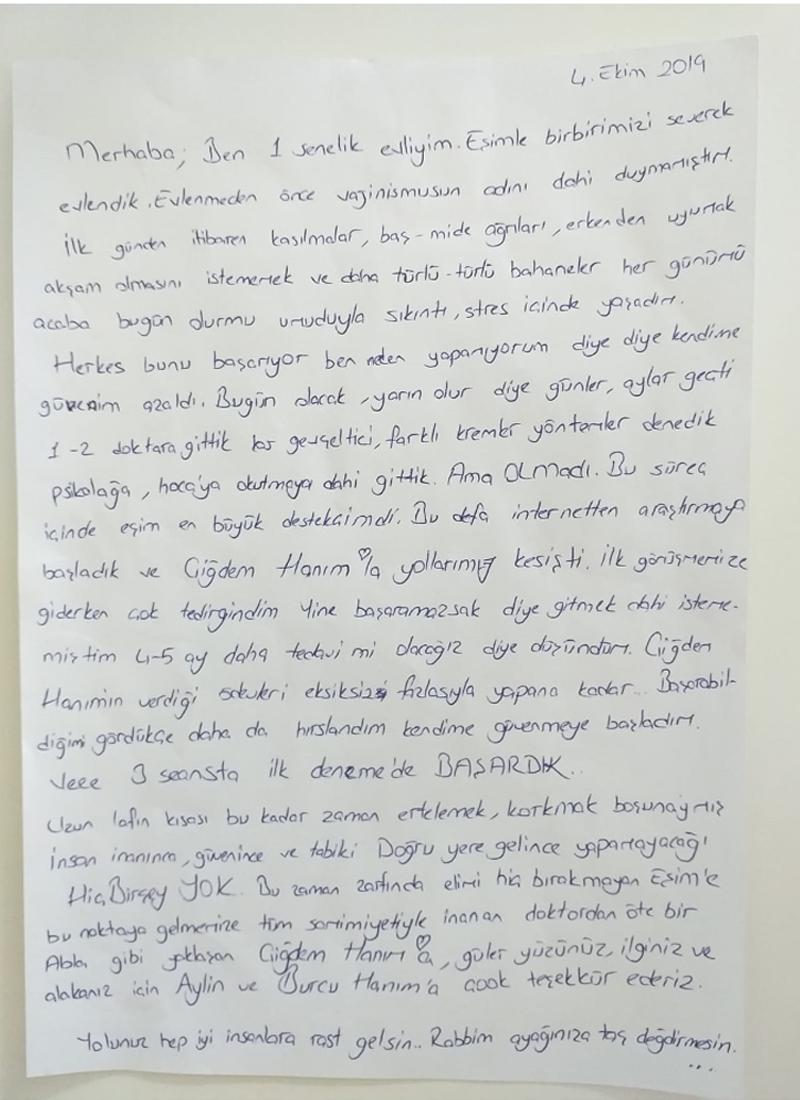 4. Ekim 2019
Merhaba; Ben 1 senelik evliyim. Eşimle birbirimizi severek
evlendik. Evlenmeden önce vajinismusun adını dahi duymamıştım.
İlk günden itibaren kasılmalar, baş-mide ağrıları, erkenden uyumak
akşam olmasını istememek ve daha türlü-türlü bahaneler her günümü
acaba bugün olurmu umuduyla sıkıntı, stres içinde yaşadım.
Herkes bunu başarıyor ben neden yapamıyorum diye diye kendime
güvenim azaldı. Bugün olacak, yarın olur diye günler, aylar geçti
1-2 doktara gittik kas gevşeltici, farklı kremler yöntemler denedik
psikoloğa, hoca'ya okutmaya dahi gittik. Ama OLMADI. Bu süreç
içinde eşim en büyük destekçimdi. Bu defa internetten araştırmaya
başladık ve Çiğdem Hanım'la yollarımız kesişti. İlk görüşmemize
giderken çok tedirgindim Yine başaramazsak diye gitmek dahi isteme-
miştim 4-5 ay daha tedavi mi olacağız diye düşündüm. Çiğdem
Hanımın verdiği ödevleri eksiksiz fazlasıyla yapana kadar.. Başarabil-
diğimi gördükçe daha da hırslandım kendime güvenmeye başladım.
Veee 3 seansta ilk deneme'de BAŞARDIK..
Uzun lafın kısası bu kadar zaman ertelemek, korkmak boşunaymış
insan inanınca, güvenince ve tabiki Doğru yere gelince yapamayacağı
Hiç Birşey YOK. Bu zaman zarfında elimi hiç bırakmayan Eşim'e
bu noktaya gelmemize tüm samimiyetiyle inanan doktordan öte bir
Abla gibi yaklaşan Çiğdem Hanım'a, güler yüzünüz, ilginiz ve
alakanız için Aylin ve Burcu Hanım'a çook teşekkür ederiz.
Yolunuz hep iyi insanlara rast gelsin.. Rabbim ayağınıza taş değdirmesin.
...